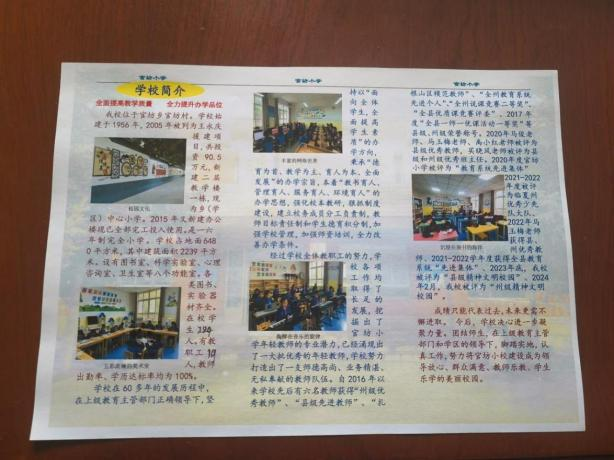 官坊小学
学校简介
全面提高教学质量 全力提升办学品位
我校位于官坊乡官坊村。学校始
建于1956年,2005年被列为王永庆
援建项
目,共投
资90.5
万元,新
建二层
教学楼
一栋,现
为乡(学
校园文化
区)中心小学。2015年又新建办公
楼现已全部完工投入使用,是一六
年制完全小学。学校占地面648
0平方米,其中建筑面积2239平方
米。设有图书室、科学实验室、心理
咨询室、卫生室等八个功能室。各
类图书、
实验器
材齐全。
在校学
生
人,有教
职工
人,教师
五彩斑斓的美术室
出勤率、学历达标率均为100%。
学校在60多年的发展历程中,
在上级教育主管部门正确领导下,坚
官坊小学
持以“面
向全体
学生,全
面提高
学生素
质”的办
学方向,
秉承“德
丰富的网络世界
育为首、教学为主、育人为本、全面
发展”的办学宗旨,本着“教书育人、
管理育人、服务育人、环境育人”的
办学思想,强化校本教研,狠抓制度
建设,建立校务成员分工负责制,教
师目标责任制和学生德育积分制,加
强学校管理,加强师资培训,全力改
善办学条件。
经过学校全体教职工的努力,学
校各项
工作均
取得了
长足的
发展,挖
掘出了
官坊小
陶醉在音乐的旋律
学年轻教师的专业潜力,已经涌现出
了一大批优秀的年轻教师,学校努力
打造出了一支师德高尚、业务精湛、
无私奉献的教师队伍。自2016年以
来学校先后有六名教师获得“州级优
秀教师”、“县级先进教师”、“扎
官坊小学
根山区模范教师”、“全州教育系统
先进个人”、“全州说课竞赛二等奖”、
“全县优质课竞赛评委”、2017年
“全县一师一优课活动一等奖”等
县级、州级荣誉称号。2020年马俊老
师、马玉梅老师、角小红老师被评为
县级优秀教师、买晓风老师被评为县
级和州级优秀班主任。2020年度官坊
小学被评为“教育系统先进集体”、
2021-2022
年度被评
为临夏州
优秀少先
队大队。
2022年马
王梅老师
获得县、
沉浸在书的海洋
州优秀教
师、2021-2022学年度获得全县教育
系统“先进集体”、2023年底,我校
被评为“县级精神文明校园”、2024
年2月,我校被评为“州级精神文明
校园”。
成绩只能代表过去,未来更需不
懈进取。今后,学校决心进一步凝
聚力量。团结师生,在上级教育主管
部门和学区的领导下,脚踏实地,认
真工作,努力将官坊小校建设成为领导
放心、群众满意、教师乐教、学生
乐学的美丽校园。